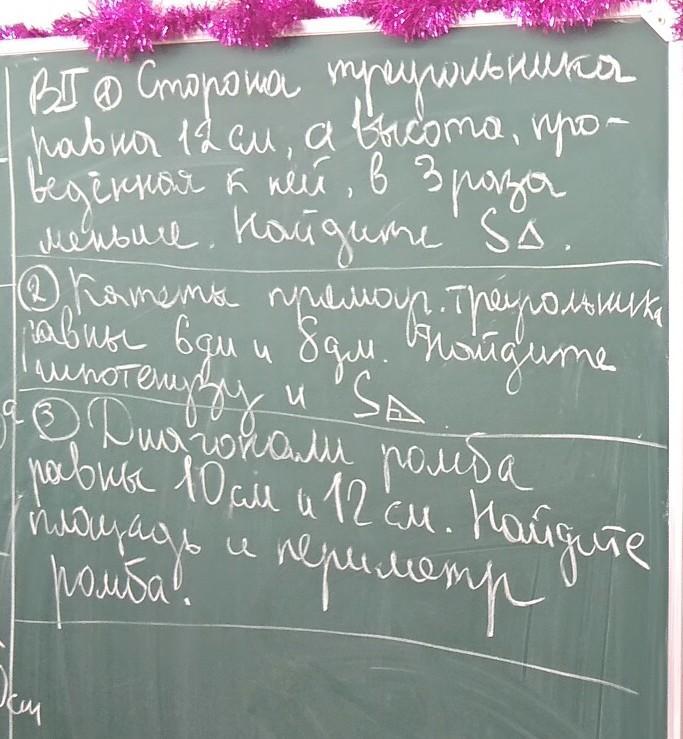 ВII ① Сторона треугольника
равна 12 см, а высота, про-
ведённая к ней, в 3 раза
меньше. Найдите S△.
② Катеты прямоуг. треугольника
равны 6дм и 8дм. Найдите
гипотенузу и S◺.
③ Диагонали ромба
равны 10 см и 12 см. Найдите
площадь и периметр
ромба.
см